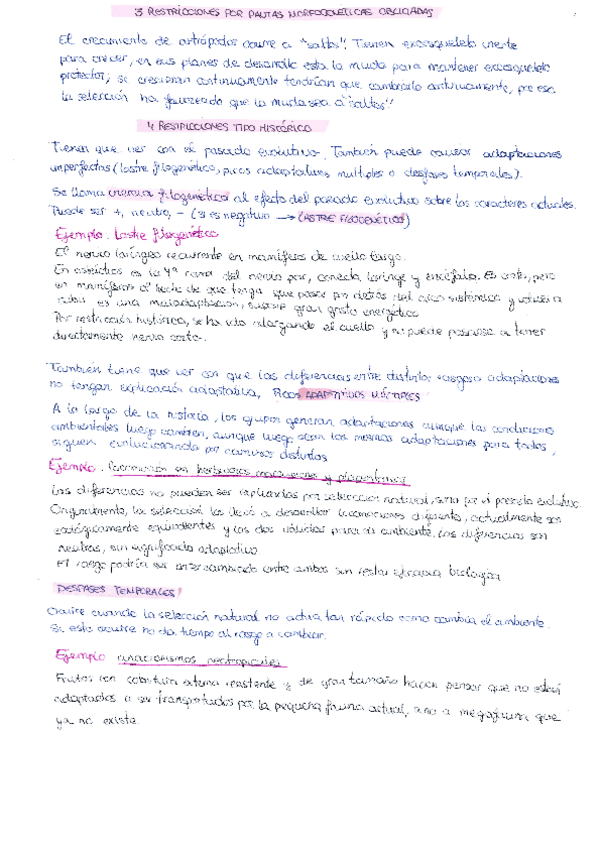 3 RESTRICCIONES POR PAUTAS MORFOGENETICAS OBLIGADAS
El crecimiento de artrópodos ocurre a "saltos". Tienen exoesqueleto inerte
para crecer, en sus planes de desarrollo esta la muda para mantener exoesqueleto
protector; si crecieran continuamente tendrían que cambiarlo continuamente, por eso
la selección ha favorecido que la muda sea a "saltos"
4 RESTRICCIONES TIPO HISTÓRICO
Tienen que ver con el pasado evolutivo. También puede causar adaptaciones
imperfectas (lastre filogenético, picos adaptativos multiples o desfases temporales).
Se llama inercia filogenética al efecto del pasado evolutivo sobre los caracteres actuales.
Puede ser +, neutro, - (si es negativo → LASTRE FILOGENÉTICO)
Ejemplo. Lastre filogenético
El nervio laríngeo recurrente en mamíferos de cuello largo.
En es la 4ª rama del nervio conecta laringe y encéfalo. Es corto, pero
en mamíferos el hecho de que tenga que pasar por detrás del arco sistémico y volver a
subir es una maladaptación, supone gran gasto energético
Por restricción histórica, se ha ido alargando el cuello y no puede pasarse a tener
directamente nervio corto.
También tiene que ver con que las diferencias entre distintos rasgos o adaptaciones
no tengan explicación adaptativa, PICOS ADAPTATIVOS MÚLTIPLES
A lo largo de la historia, los grupos generan adaptaciones aunque las condiciones
ambientales luego cambien, aunque luego sean las mismas adaptaciones para todos,
siguen evolucionando por caminos distintos
Ejemplo. locomoción en herbívoros marsupiales y placentarios
Las diferencias no pueden ser explicadas por selección natural, sino por el pasado evolutivo.
Originalmente, la selección los llevó a desarrollar locomociones diferentes, actualmente son
ecológicamente equivalentes y las dos válidas para su ambiente. Las diferencias son
neutras, sin significado adaptativo
El rasgo podría ser intercambiado entre ambos sin restar eficacia biológica
DESFASES TEMPORALES
Ocurre cuando la selección natural no actua tan rápido como cambia el ambiente.
Si esto ocurre no da tiempo al rasgo a cambiar.
Ejemplo anacronismos neotropicales
Frutos con cobertura externa resistente y de gran tamaño hacen pensar que no están
adaptados a ser transportados por la pequeña fauna actual, sino a megafauna que
ya no existe.